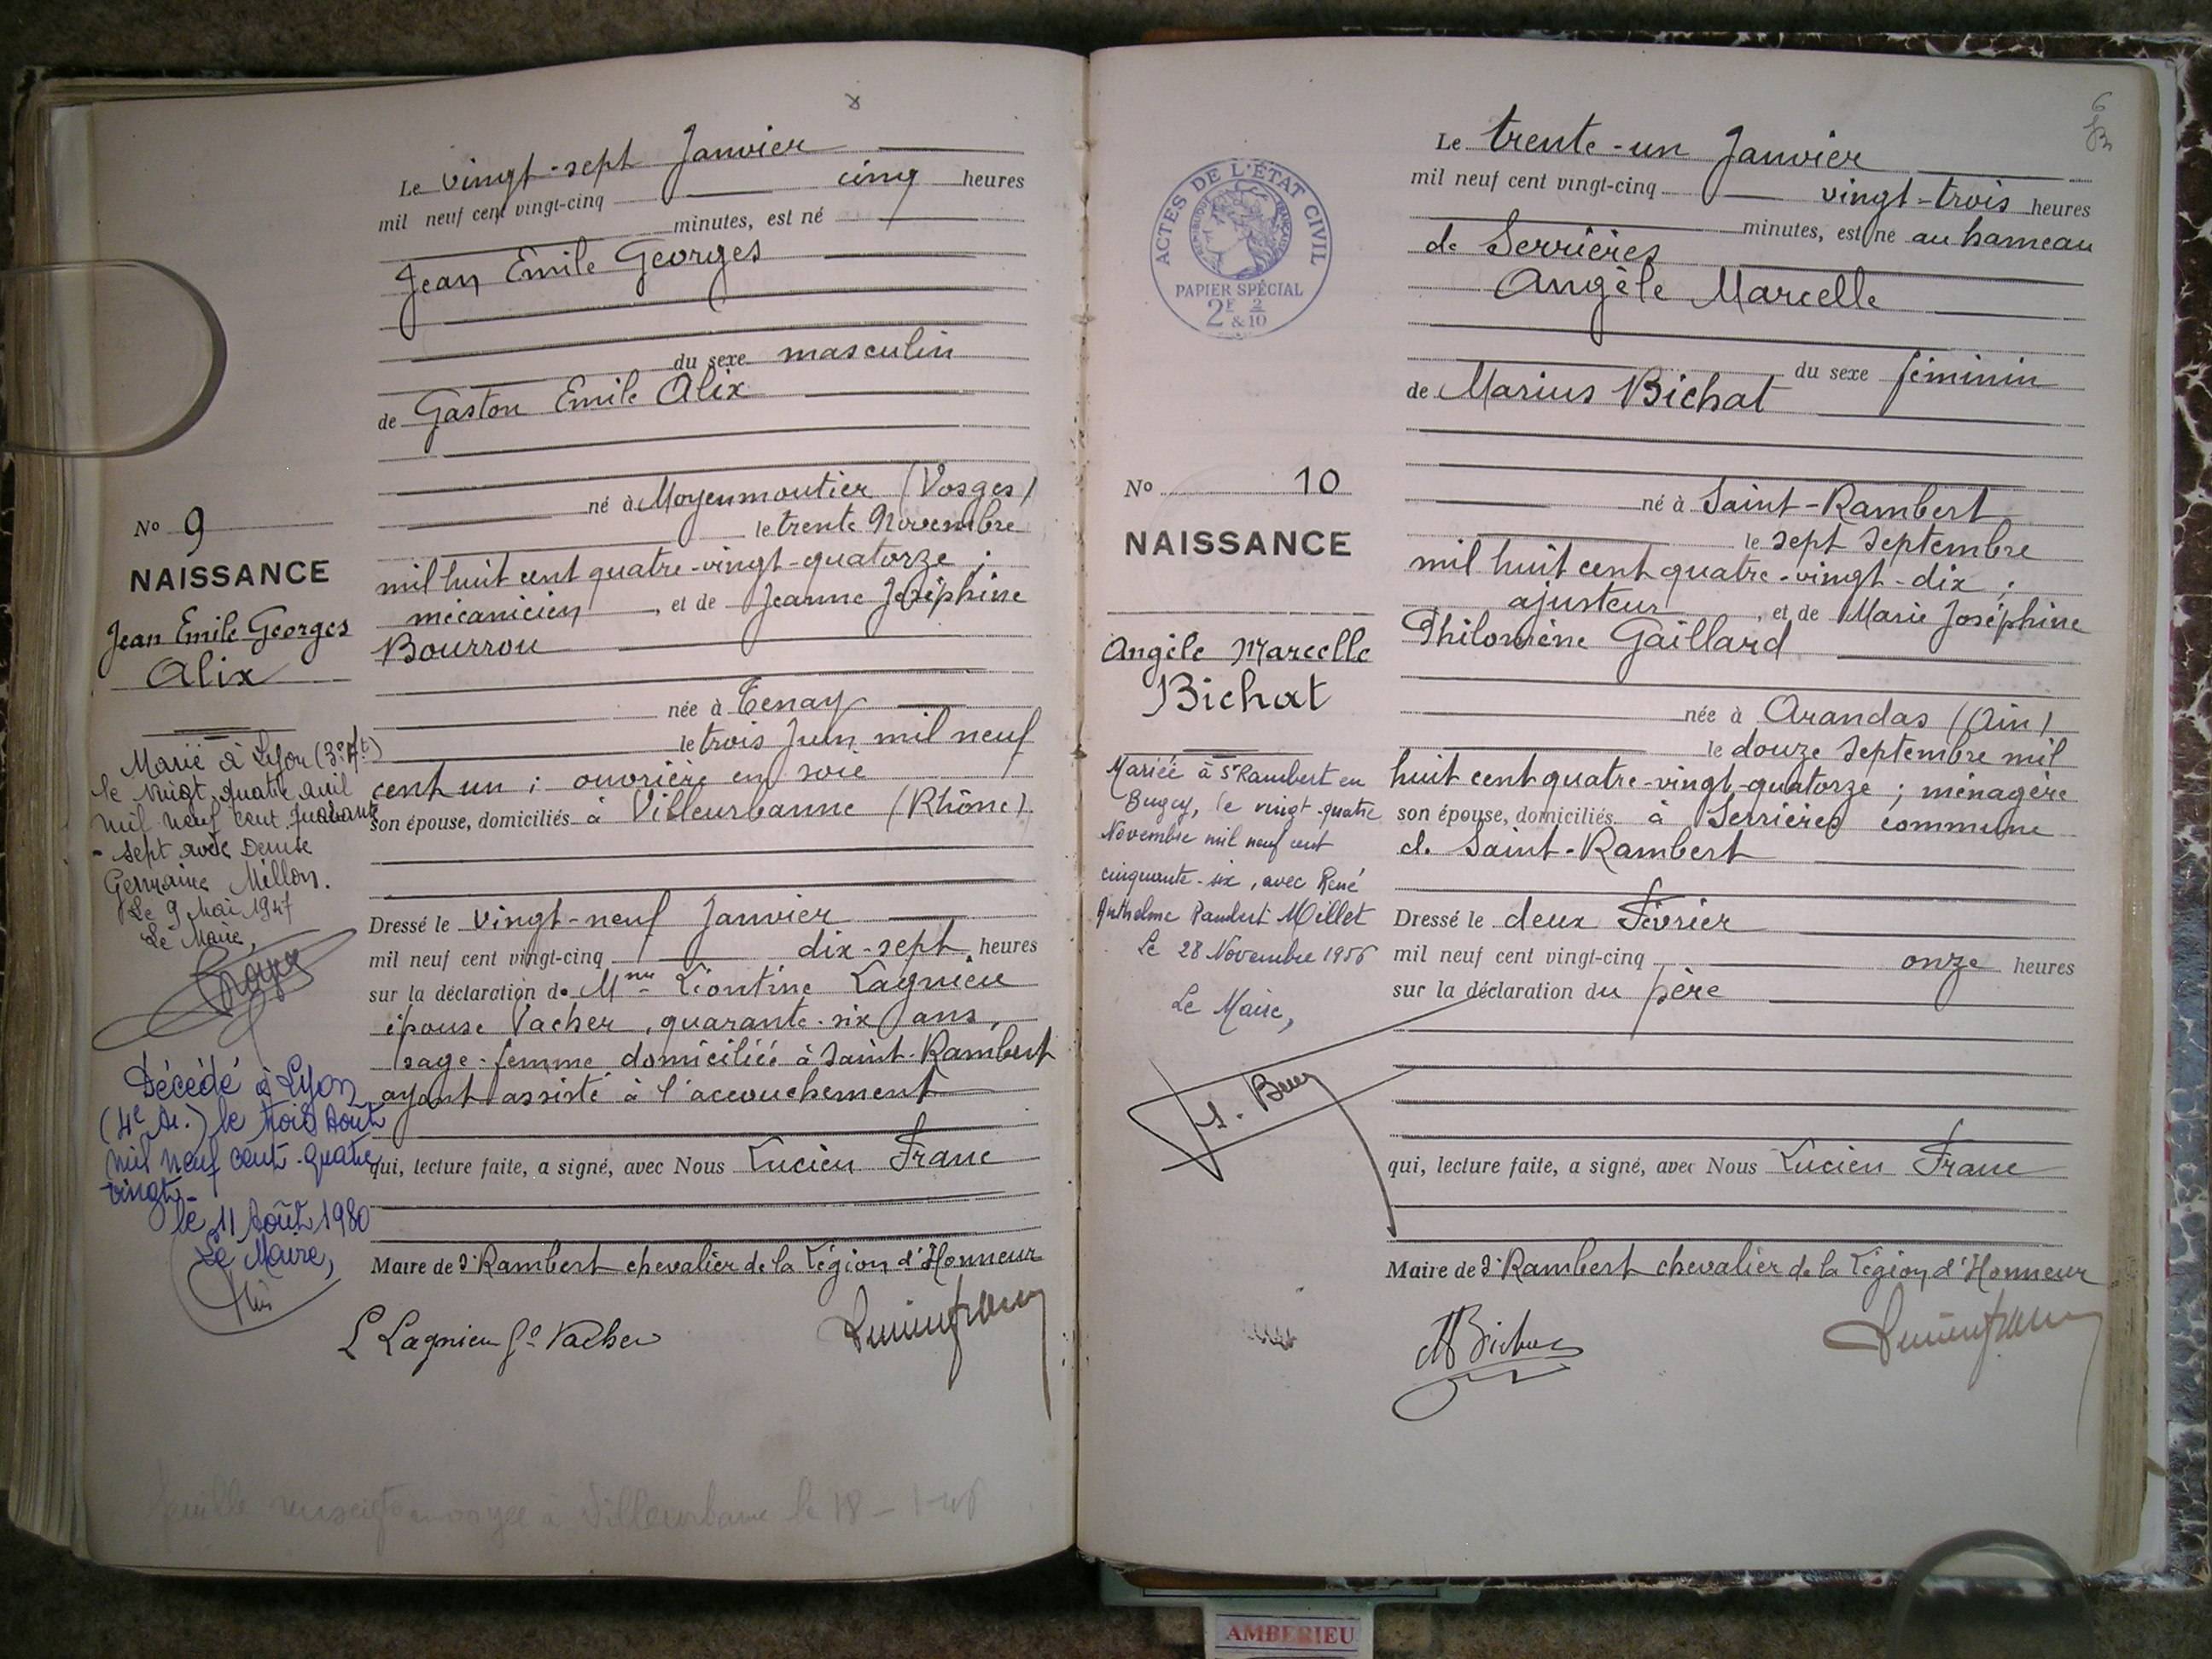 Le vingt-sept Janvier
mil neuf cent vingt-cinq cinq heures
minutes, est né
Jean Emile Georges
du sexe masculin
de Gaston Emile Alix
né à Moyenmoutier (Vosges)
le trente Novembre
mil huit cent quatre-vingt-quatorze ;
mécanicien , et de Jeanne Joséphine
Bourrou
née à Tenay
le trois Juin mil neuf
cent un ; ouvrière en soie
son épouse, domiciliés à Villeurbanne (Rhône).
Dressé le vingt-neuf Janvier
mil neuf cent vingt-cinq dix-sept heures
sur la déclaration de Mme Léontine Lagnieu
épouse Vacher, quarante-six ans,
sage-femme domiciliée à Saint-Rambert
ayant assisté à l'accouchement
qui, lecture faite, a signé, avec Nous Lucien Franc
Maire de St Rambert chevalier de la Légion d'Honneur
L Lagnieu Vacher
No 9
NAISSANCE
Jean Emile Georges
Alix
Marié à Lyon (3e At)
le vingt quatre avril
mil neuf cent quarante
- sept avec Denise
Germaine Millon.
Le 9 Mai 1947
Le Maire,
Décédé à Lyon
(4e Ar.) le trois Août
mil neuf cent-quatre
vingt-
le 11 Août 1980
Le Maire,
envoyée à Villeurbanne le 18 -
Le trente-un Janvier
mil neuf cent vingt-cinq vingt-trois heures
minutes, est né au hameau
de Serrières
Angèle Marcelle
du sexe féminin
de Marius Bichat
né à Saint-Rambert
le sept Septembre
mil huit cent quatre-vingt-dix ;
ajusteur , et de Marie Joséphine
Philomène Gaillard
née à Arandas (Ain)
le douze Septembre mil
huit cent quatre-vingt-quatorze ; ménagère
son épouse, domiciliés à Serrières commune
de Saint-Rambert
Dressé le deux Février
mil neuf cent vingt-cinq onze heures
sur la déclaration du père
qui, lecture faite, a signé, avec Nous Lucien Franc
Maire de St Rambert chevalier de la Légion d'Honneur
ACTES DE L'ÉTAT CIVIL
PAPIER SPÉCIAL
2F 2
& 10
No 10
NAISSANCE
Angèle Marcelle
Bichat
Mariée à St Rambert en
Bugey, le vingt-quatre
Novembre mil neuf cent
cinquante-six, avec René
Anthelme Rambert Millet
Le 28 Novembre 1956
Le Maire,
6
AMBERIEU